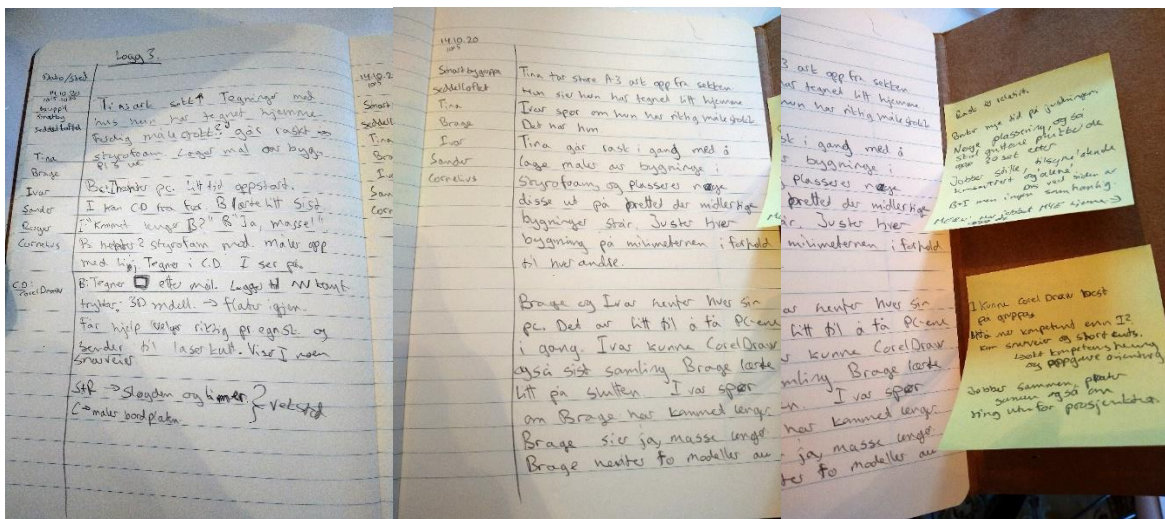 Logg 3.
Dato/sted
14.10.20
Gruppe
Smartby
Seddelloftet
Tina
Brage
Ivar
Sander
Cornelius
C.D:
CorelDraw
Tegninger med
hus hun har tegnet hjemme.
går raskt
styrofoam Lager mål av bygg.
B:I henter pc. litt tid oppstart.
I kan CD fra før B lærte litt sist
I "kommet lenger B?" B "Ja, masse!"
B henter 2 styrofoam mod. måler opp
med linj Tegner i C.D. I ser på.
B: Tegner etter mål. Legger til
3D modell. → flater igjen.
får hjelp velger riktig og
sender til laserkutt. Viser I noen
snarveier
→ Sløyden og limer
C → maler bordplaten
14.10.2
Smart
Seddell
Tina
Bra
Iv
San
Cor
14.10.20
Smartbygruppa
Seddelloftet
Tina
Brage
Ivar
Sander
Cornelius
Tina tar store A3 ark opp fra sekken
Hun sier hun har tegnet litt hjemme
Ivar spør om hun har riktig målestokk
Det har hun
Tina går rask i gang med å
lage maler av bygninge i
styrofoam og plasseres nøye
disse ut på brettet der midlertige
bygninger står. Juster hver
bygning på milimeteren i forhold
til hverandre.
Brage og Ivar henter hver sin
pc. Det av litt til å få PC-ene
i gang. Ivar kunne CorelDraw
også sist samling Brage lærte
litt på slutten. Ivar spør
om Brage har kommet lenger
Brage sier ja, masse lenger
Brage henter to modeller av
3 ark opp fra sekken
har tegnet litt hjemme
hun har riktig målestokk
st i gang med å
bygninge i
plasseres nøye
brettet der midlertige
Juster hver
milimeteren i forhold
ar henter hver sin
litt til å få PC-ene
r kunne CorelDraw
mling Brage lærte
n. Ivar spør
har kommet lenger
ja, masse lenger
ter to modeller av
Raskt er relativt.
Bruker mye tid på justeringen.
Nøye plassering, også
Jobber stille, tilsynelatende
konsentrert og 'alene'
om ved siden av
B+I men ingen samhandling.
jobbet MYE hjemme →
I kunne Corel Draw best
på gruppa.
Nå mer kompetent enn I?
kan snarveier og short cuts.
og oppgave orientering
Jobber sammen, prater
sammen også om
ting utenfor prosjektet.